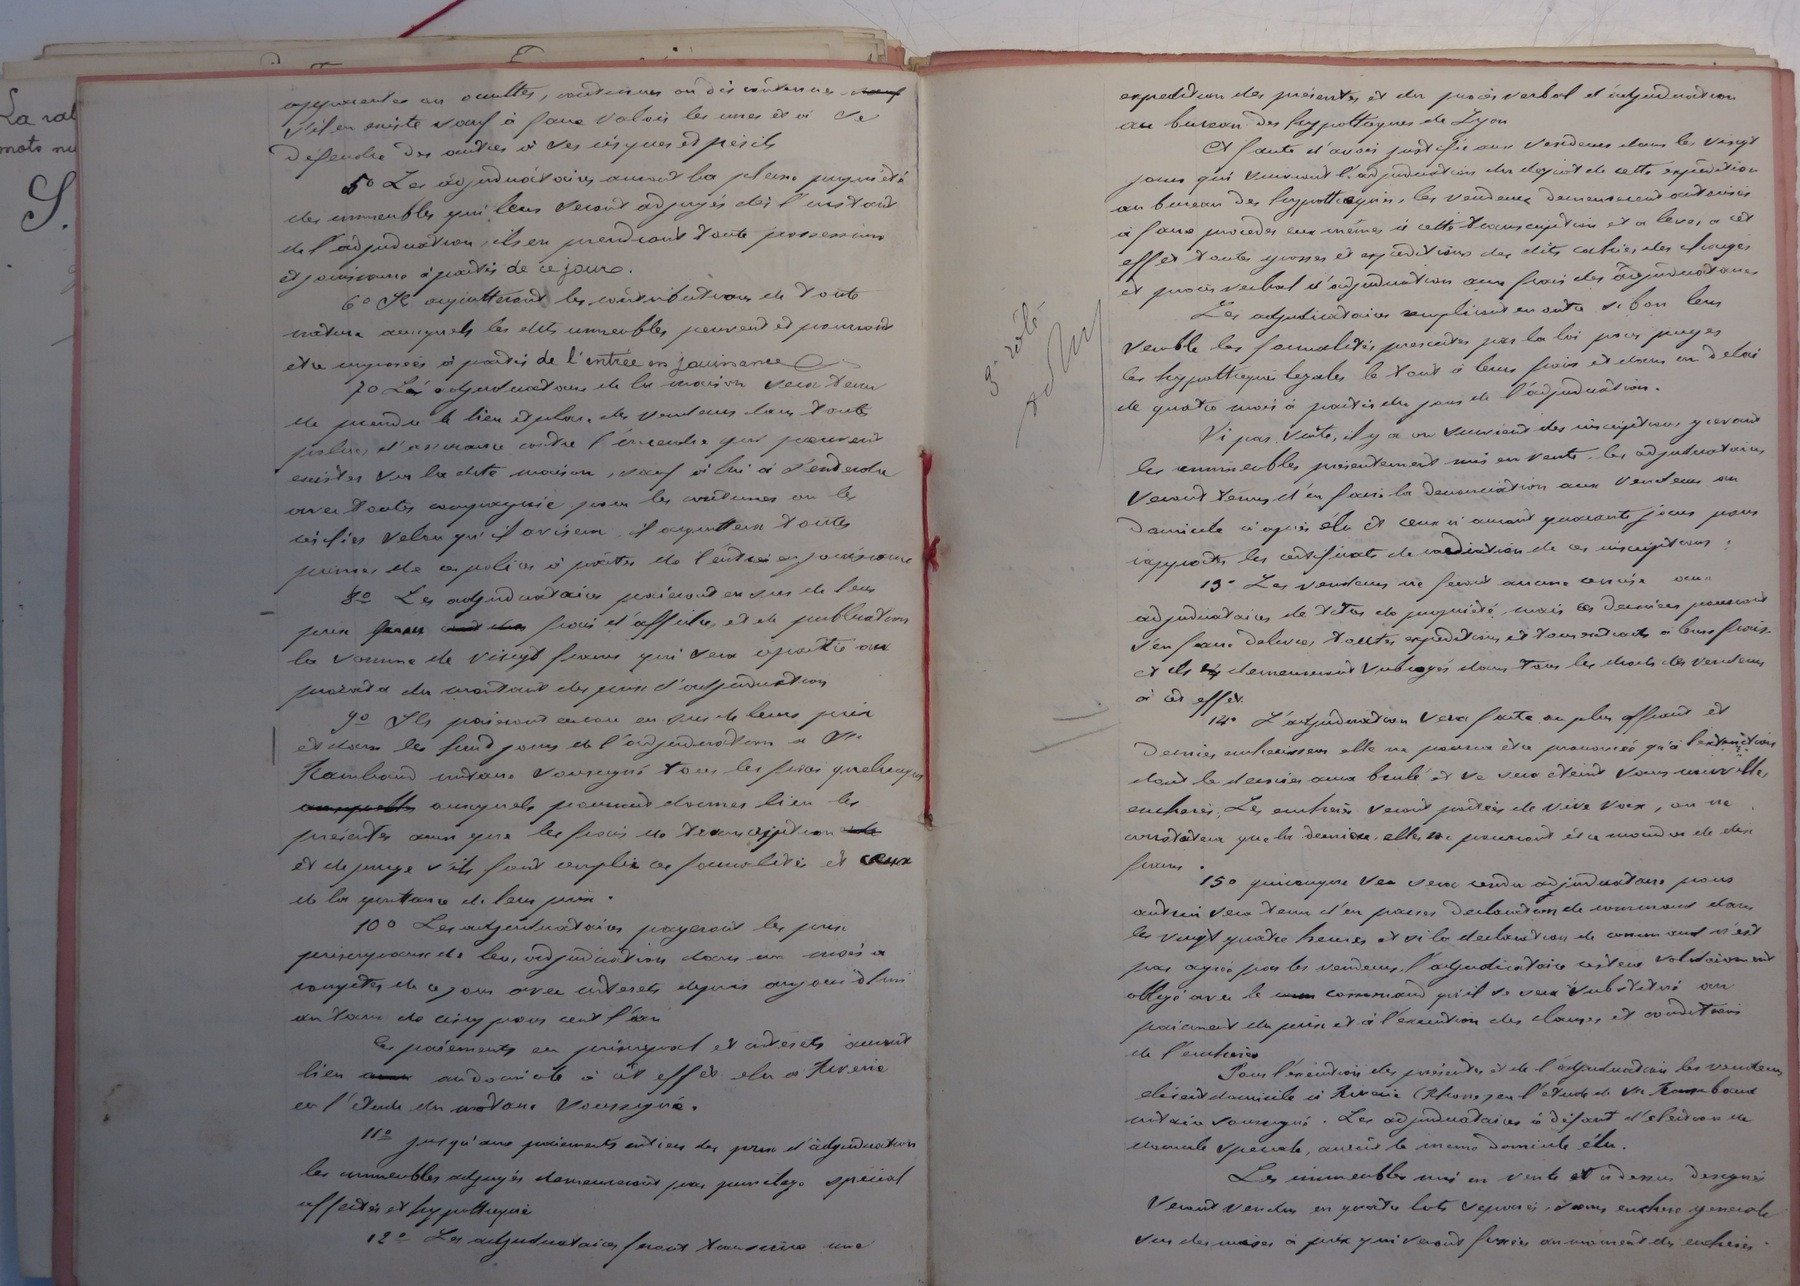 La val
mots nu
S.
apparentes ou occultes, continues ou discontinues sauf
s'il en existe sauf à faire valoir les unes et à se
défendre des autres à ses risques et périls
5º Les adjudicataires auront la pleine propriété
des immeubles qui leur seront adjugés dès l'instant
de l'adjudication, ils en prendront toute possession
et jouissance à partir de ce jour.
6º Ils acquitteront les contributions de toute
nature auxquels les dits immeubles peuvent et pourront
etre imposées à partir de l'entrée en jouissance
7º Lé adjudicataire de la maison sera tenu
de prendre le lieu et place des vendeurs dans toute
polices d'assurance contre l'incendie qui peuvent
exister sur la dite maison, sauf à lui à s'entendre
avec toutes compagnie pour les continuer ou les
résilier selon qu'il avisera, il acquittera toutes
primes de ces polices à partir de l'entrée en jouissance
8º Les adjudicataires paieront en sus de leur
prix pour frais d'affiche et de publication
la somme de vingt francs qui sera répartie au
prorata du montant des prix d'adjudication
9º Ils paieront encore en sus de leurs prix
et dans les huit jours de l'adjudication a Me
Rambaud notaire soussigné tous les frais quelconques
auxquels auxquels pourront donner lieu les
présentes ainsi que les frais de transcription de
et de purge s'ils font remplir ces formalités et ceux
de la quittance de leur prix.
10º Les adjudicataires payeront les prix
principaux de leur adjudication dans un mois a
compter de ce jour avec intérets depuis aujourd'hui
au taux de cinq pour cent l'an
Les paiements en principal et intérets auront
lieu au domicile à cet effet élu a Riverie
en l'étude du notaire soussigné.
11º Jusqu'aux paiements entiers des prix d'adjudication
les immeubles adjugés demeureront par privilège spécial
affectés et hypothéqué
12º Les adjudicataires feront transcrire une
3e rôle
expedition des présentes et du procès verbal d'adjudication
au bureau des hypothèques de Lyon
Et faute d'avoir justifié aux vendeurs dans les vingt
jours qui suivront l'adjudication du dépôt de cette expédition
au bureau des hypothèques, les vendeurs demeureront autorisés
à faire procéder eux mêmes à cette transcription et a lever a cet
effet toutes grosses et expéditions des dits cahier des charges
et procès verbal d'adjudication aux frais des adjudicataires
Les adjudicataires rempliront en outre si bon leur
semble les formalités prescrites par la loi pour purger
les hypothèques légales le tout à leurs frais et dans un délai
de quatre mois à partir du jour de l'adjudication.
Si par suite, il y a ou survient des inscriptions grevant
les immeubles présentement mis en vente, les adjudicataires
seront tenus d'en faire la dénonciation aux vendeurs au
domicile ci après élu et ceux ci auront quarante jours pour
rapporter les certificats de radiation de ces inscriptions.
13º Les vendeurs ne feront aucune remise aux
adjudicataires de titres de propriété, mais ces derniers pourront
s'en faire délivrer, toutes expéditions et tous extraits à leurs frais
et ils demeureront subrogés dans tous les droits des vendeurs
à cet effet.
14º L'adjudication sera faite au plus offrant et
dernier enchérisseur elle ne pourra être prononcée qu'à l'extinction
dont le dernier aura brulé et se sera éteint sans nouvelles
enchères. Les enchères seront portées de vive voix, on ne
constatera que la dernière, elles ne pourront être moindre de dix
francs.
15º quiconque se sera rendu adjudicataire pour
autrui sera tenu d'en passer déclaration de command dans
les vingt quatre heures et si la déclaration de command n'est
pas agréé par les vendeurs, l'adjudicataire restera solidairement
obligé avec le command qu'il se sera substitué au
paiement du prix et à l'exécution des clauses et conditions
de l'enchère
Pour l'exécution des présentes et de l'adjudication les vendeurs
élisent domicile à Riverie (Rhône) en l'étude de Me Rambaud
notaire soussigné. Les adjudicataires à défaut d'élection de
domicile spéciale, auront le meme domicile élu.
Les immeubles mis en vente et ci dessus designés
seront vendus en quatre lots séparés, sans enchère generale
sur des mises à prix qui seront fixées au moment des enchères.